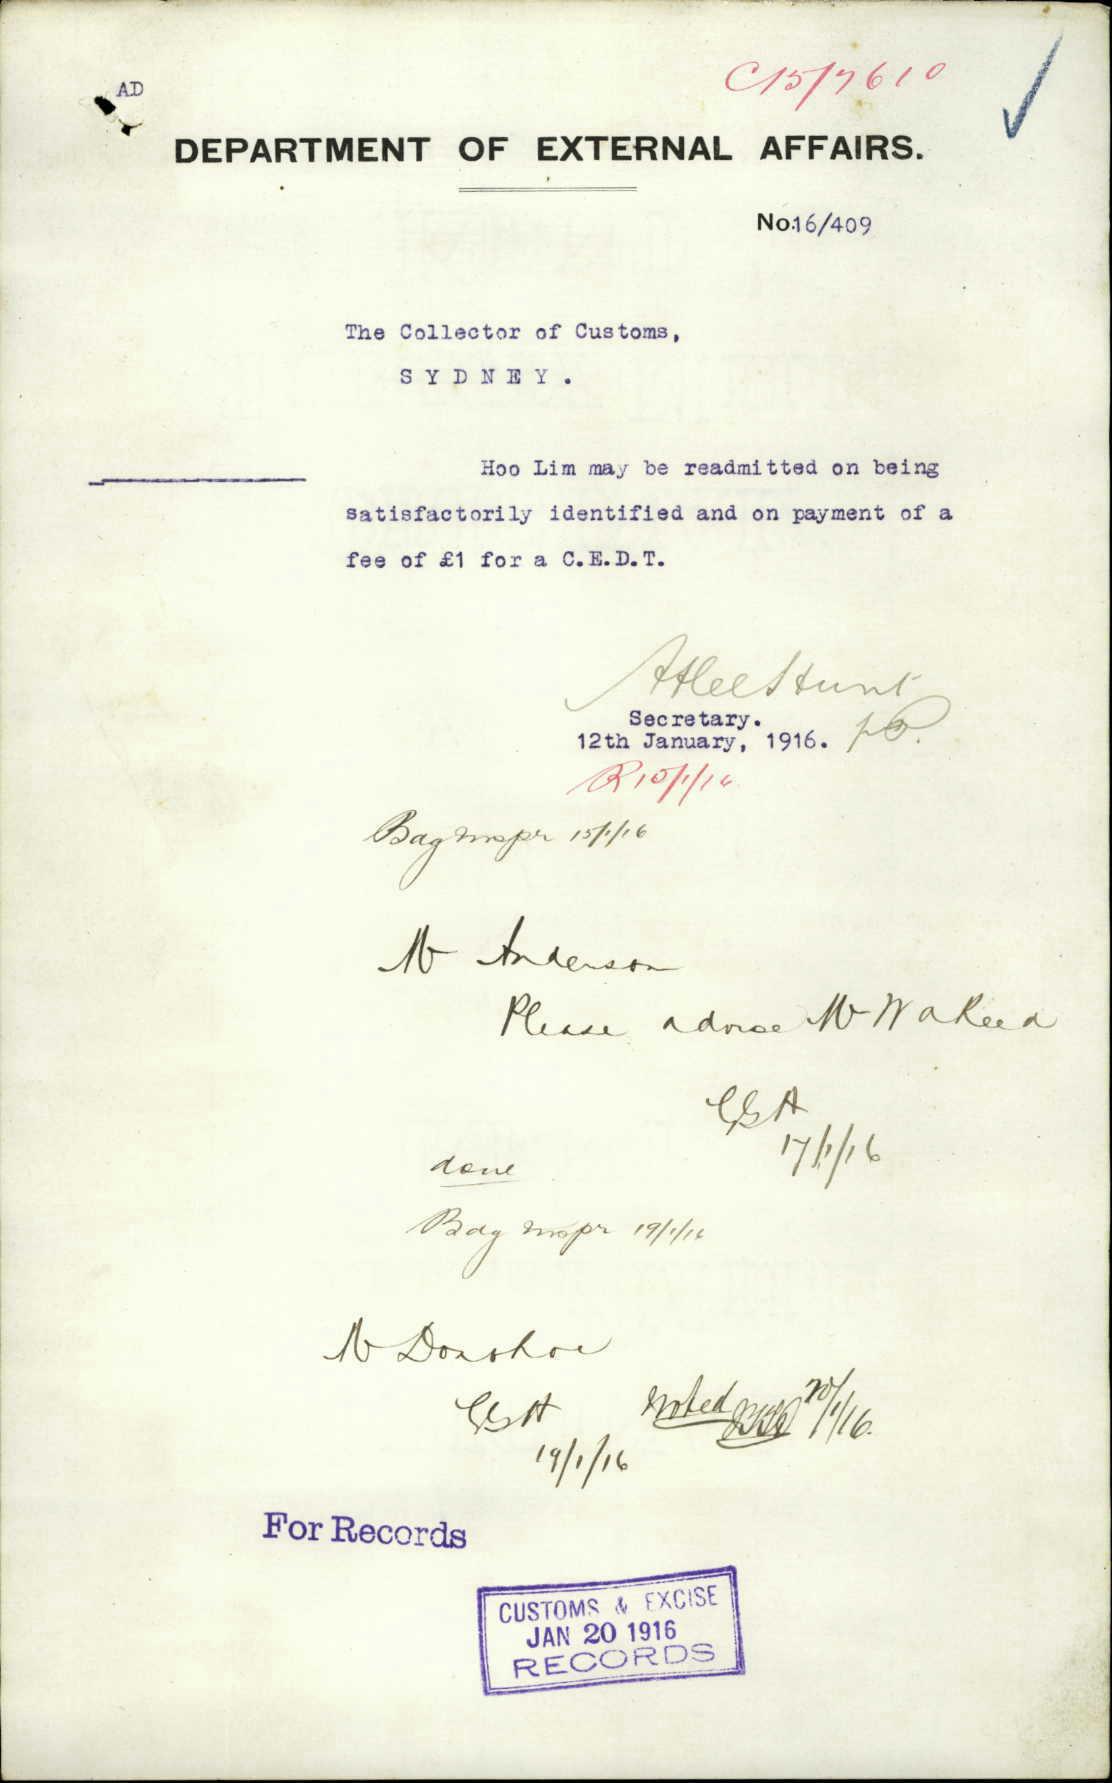 C15/7610
AD
DEPARTMENT OF EXTERNAL AFFAIRS.
No.16/409
The Collector of Customs,
SYDNEY.
Hoo Lim may be readmitted on being
satisfactorily identified and on payment of a
fee of £1 for a C.E.D.T.
Atlee Hunt
Secretary.
12th January, 1916.
R 15/1/16
Bag Inspr 15/1/16
Mr Anderson
Please advise Mr W A Reed
17/1/16
done
Bag Inspr 19/1/16
Mr Donohoe
Noted 20/1/16.
19/1/16
For Records
CUSTOMS & EXCISE
JAN 20 1916
RECORDS